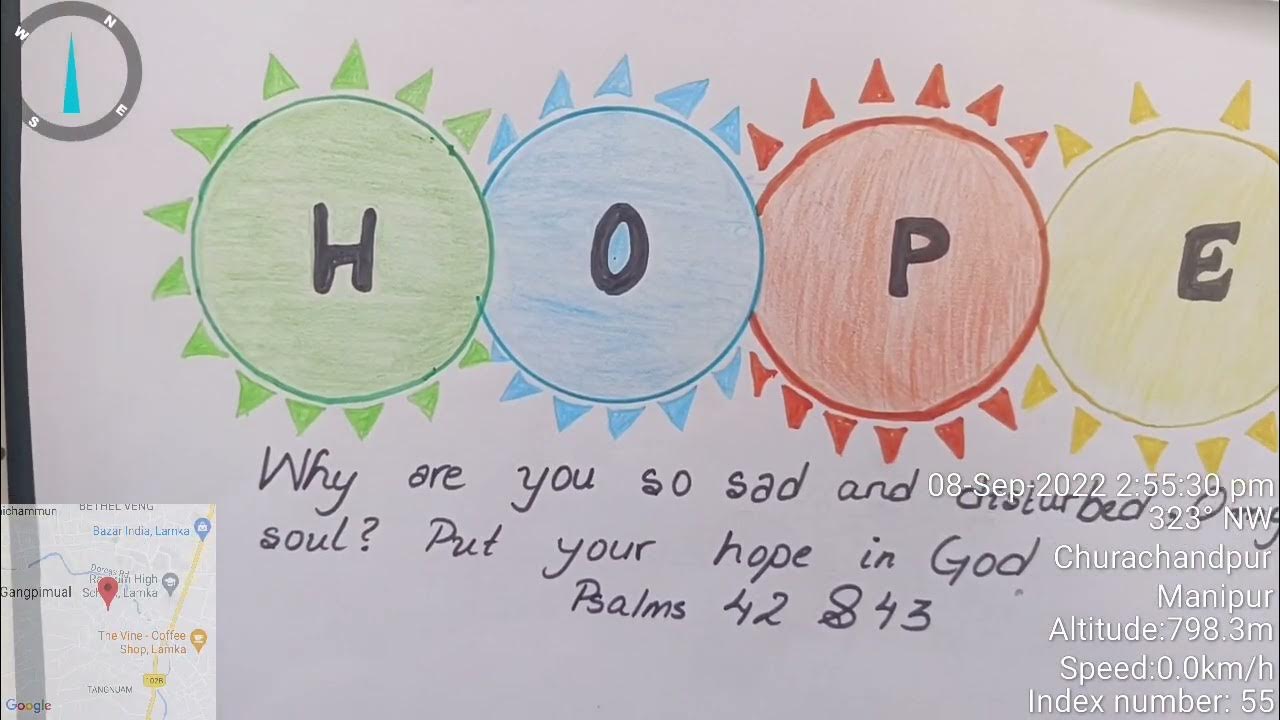 W N
S E
H O P E
Why are you so sad and disturbed, O my
soul? Put your hope in God
Psalms 42 & 43
08-Sep-2022 2:55:30 pm
323° NW
Churachandpur
Manipur
Altitude:798.3m
Speed:0.0km/h
Index number: 55
BETHEL VENG
Bazar India, Lamka
Dorcas Rd
High
Gangpimual
Lamka
The Vine - Coffee
Shop, Lamka
102B
TANGNUAM
Google